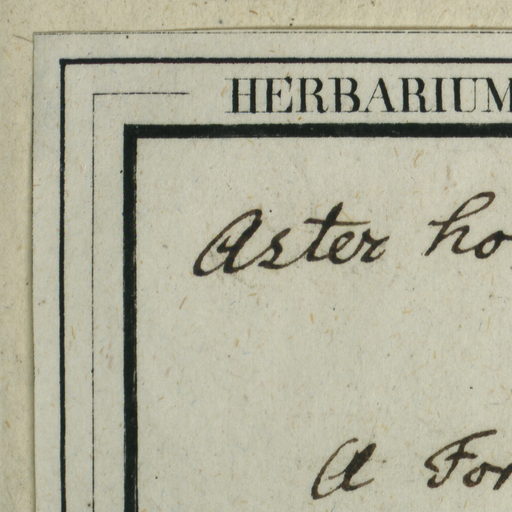 HERBARIUM
Aster ho
A For